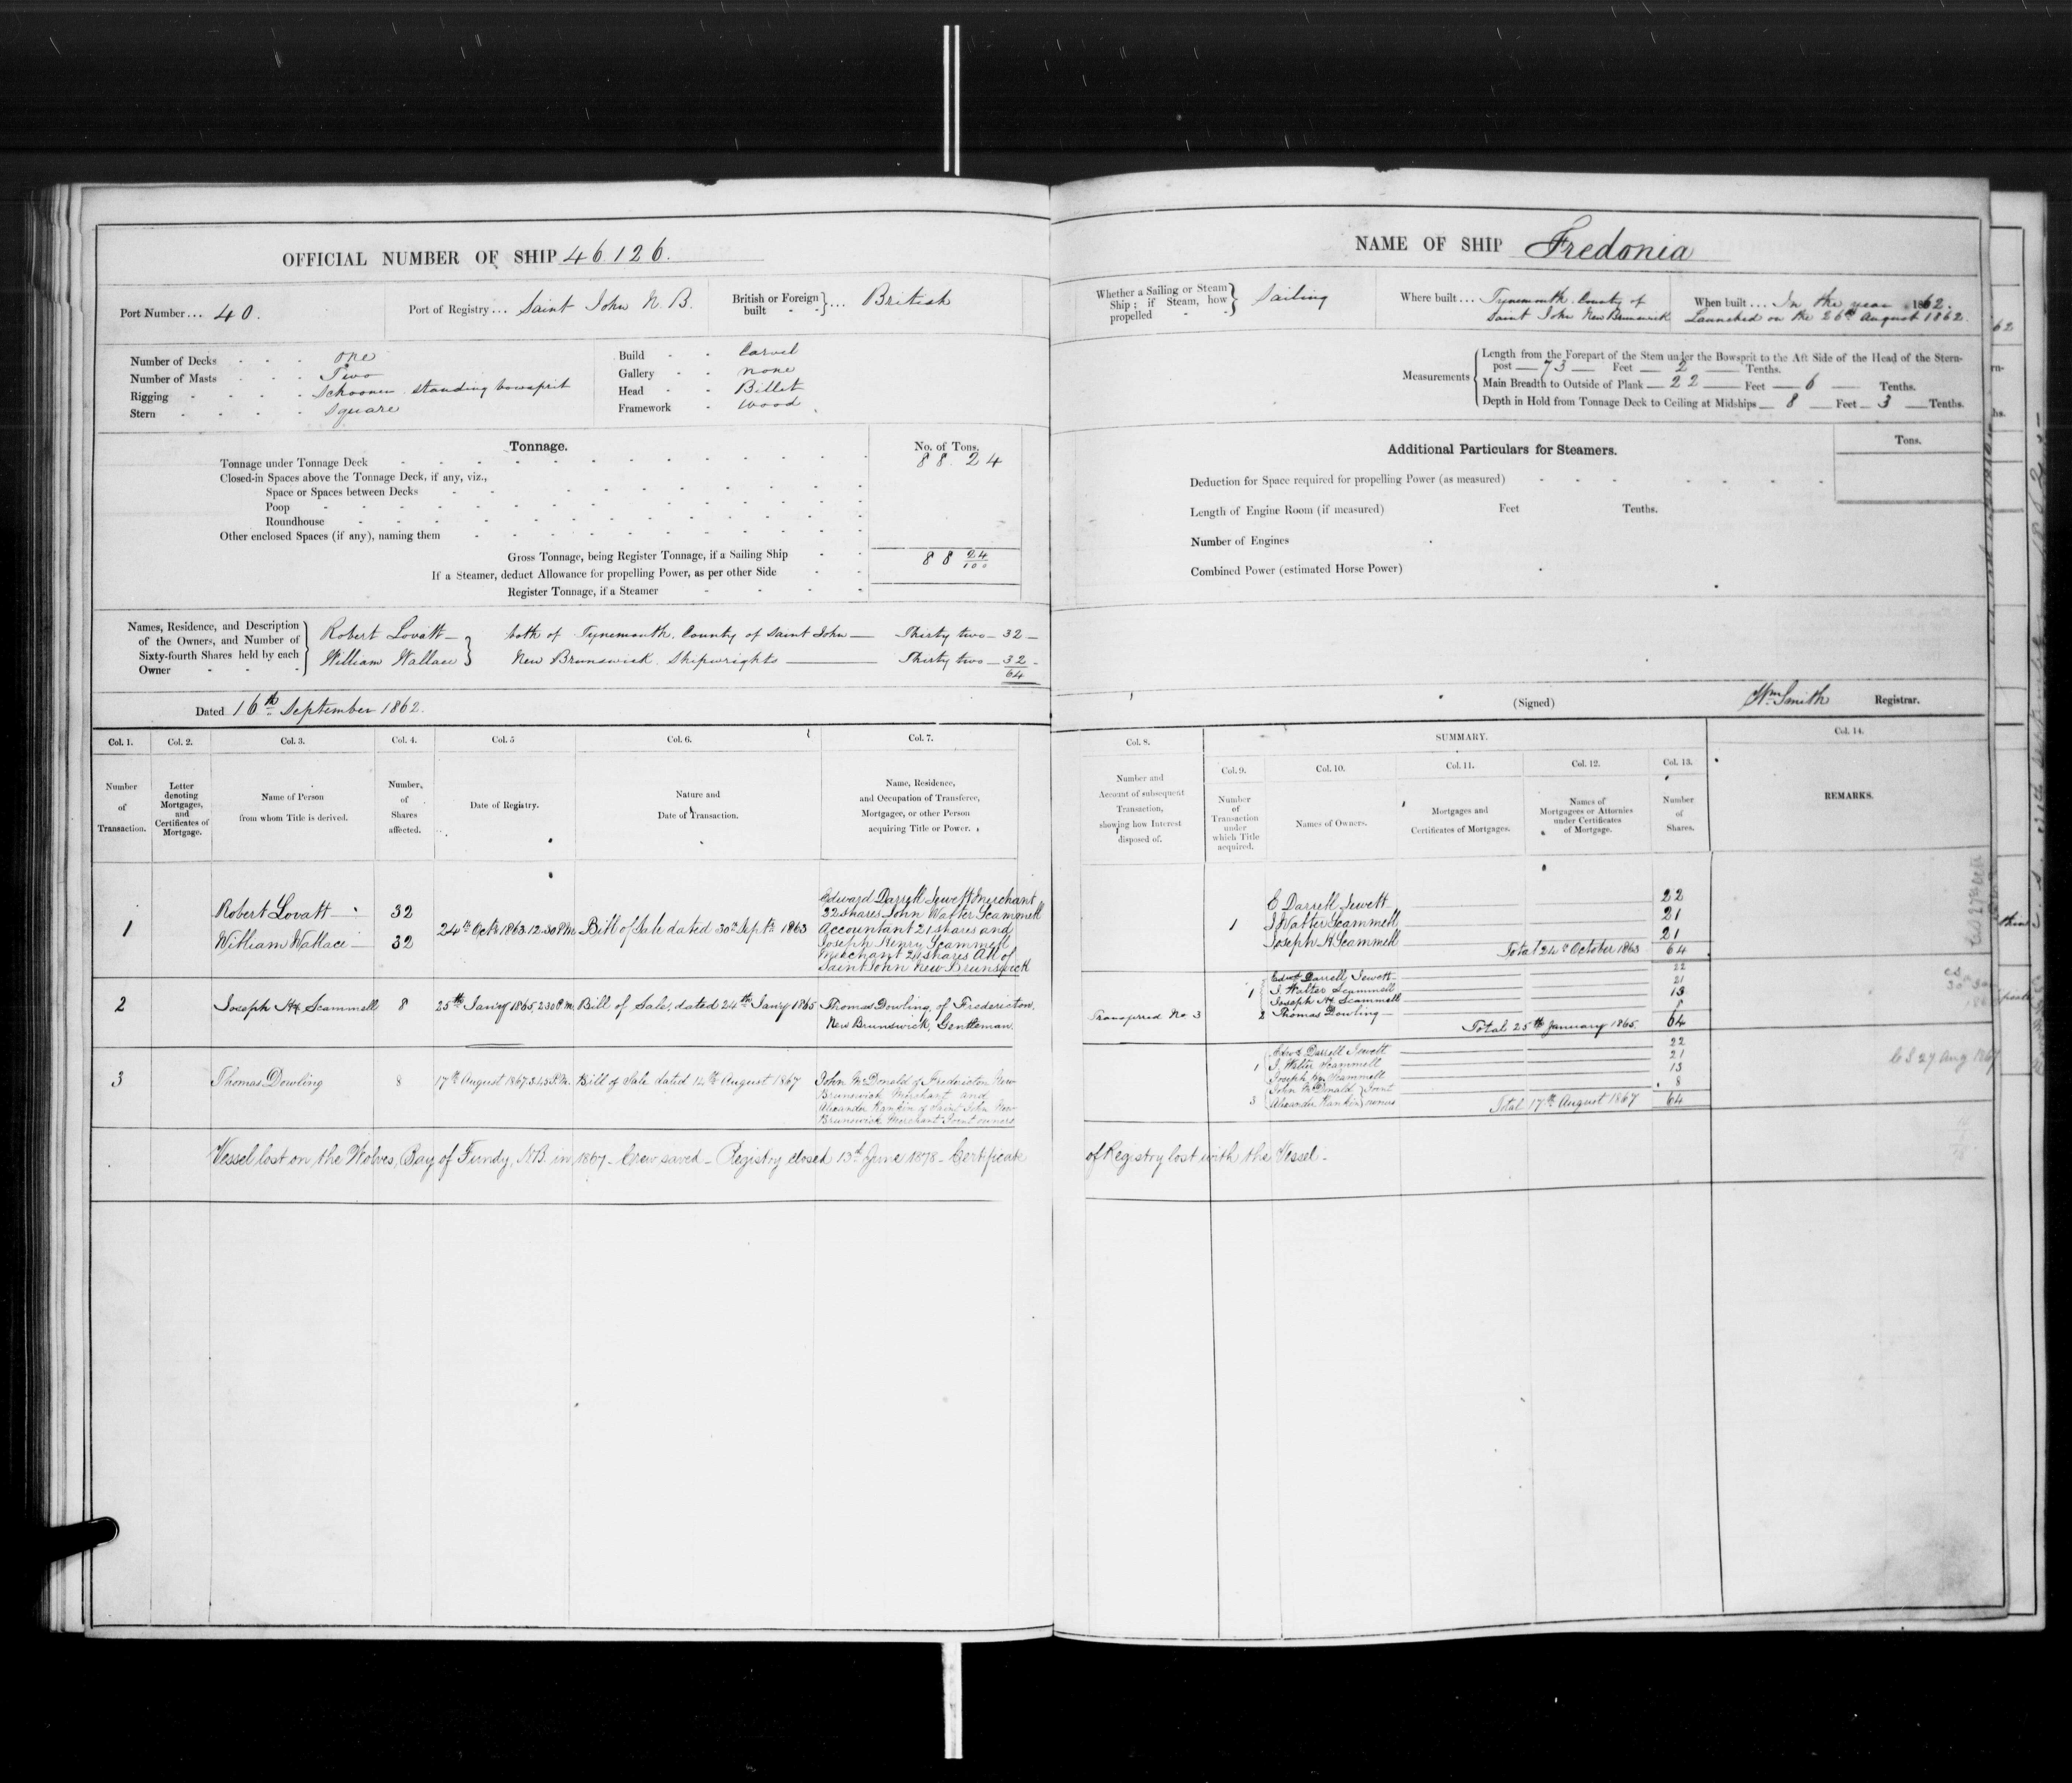 OFFICIAL NUMBER OF SHIP 46.126.
Port Number... 40.
Port of Registry... Saint John N. B.
British or Foreign built } ... British
Number of Decks - - - one
Number of Masts - - - Two
Rigging - - - - Schooner. standing bowsprit
Stern - - - - square
Build - - Carvel
Gallery - - none
Head - - Billet
Framework - wood
Tonnage.
No. of Tons.
Tonnage under Tonnage Deck 88.24
Closed-in Spaces above the Tonnage Deck, if any, viz.,
Space or Spaces between Decks
Poop
Roundhouse
Other enclosed Spaces (if any), naming them
Gross Tonnage, being Register Tonnage, if a Sailing Ship 88 24/100
If a Steamer, deduct Allowance for propelling Power, as per other Side
Register Tonnage, if a Steamer
Names, Residence, and Description
of the Owners, and Number of
Sixty-fourth Shares held by each
Owner
Robert Lovatt — both of Tynemouth. County of Saint John — Thirty two — 32 —
William Wallace } New Brunswick. Shipwrights — Thirty two — 32 -
64
Dated 16th September 1862.
Col. 1. Col. 2. Col. 3. Col. 4. Col. 5 Col. 6. Col. 7.
Number of Transaction.
Letter denoting Mortgages, and Certificates of Mortgage.
Name of Person from whom Title is derived.
Number, of Shares affected.
Date of Registry.
Nature and Date of Transaction.
Name, Residence, and Occupation of Transferee, Mortgagee, or other Person acquiring Title or Power.
1
Robert Lovatt — 32
William Wallace — 32
24th Octr 1863. 12.30 P.M.
Bill of Sale dated 30th Septr 1863
Edward Darrell Jewett Merchant
22 shares John Walter Scammell
Accountant 21 shares and
Joseph Henry Scammell
Merchant 21 shares All of
Saint John New Brunswick
2
Joseph Hy Scammell 8
25th Jany 1865. 2.30 P.M.
Bill of Sale, dated 24th Jany 1865
Thomas Dowling, of Fredericton,
New Brunswick, Gentleman.
3
Thomas Dowling 8
17th August 1867. 3.45 P.M.
Bill of Sale dated 14th August 1867
John McDonald of Fredericton New
Brunswick Merchant and
Alexander Rankin of Saint John New
Brunswick Merchant Joint owners
Vessel lost on the Wolves, Bay of Fundy, N.B. in 1867 — Crew saved — Registry closed 13th June 1878 — Certificate
NAME OF SHIP Fredonia
Whether a Sailing or Steam
Ship; if Steam, how
propelled
Sailing
Where built... Tynemouth. County of
Saint John New Brunswick
When built... In the year 1862.
Launched on the 26th August 1862.
Measurements
Length from the Forepart of the Stem under the Bowsprit to the Aft Side of the Head of the Stern-
post — 73 — Feet — 2 — Tenths.
Main Breadth to Outside of Plank — 22 — Feet — 6 — Tenths.
Depth in Hold from Tonnage Deck to Ceiling at Midships — 8 — Feet — 3 — Tenths.
Additional Particulars for Steamers.
Tons.
Deduction for Space required for propelling Power (as measured)
Length of Engine Room (if measured) Feet Tenths.
Number of Engines
Combined Power (estimated Horse Power)
(Signed) Wm Smith Registrar.
Col. 8.
SUMMARY.
Col. 14.
Col. 9. Col. 10. Col. 11. Col. 12. Col. 13.
Number and Account of subsequent Transaction, showing how Interest disposed of.
Number of Transaction under which Title acquired.
Names of Owners.
Mortgages and Certificates of Mortgages.
Names of Mortgagees or Attornies under Certificates of Mortgage.
Number of Shares.
REMARKS.
1
E Darrell Jewett 22
J Walter Scammell 21
Joseph H Scammell 21
Total 24th October 1863 64
Edwd Darrell Jewett 22
1 J. Walter Scammell 21
Joseph Hy Scammell 13
Transferred No 3 2 Thomas Dowling — 8
Total 25th January 1865. 64
Edwd Darrell Jewett 22
1 J. Walter Scammell 21
Joseph Hy Scammell 13
3 John McDonald } Joint 8
Alexander Rankin } owners
Total 17th August 1867 64
CS 29 Aug 1867
of Registry lost with the Vessel —